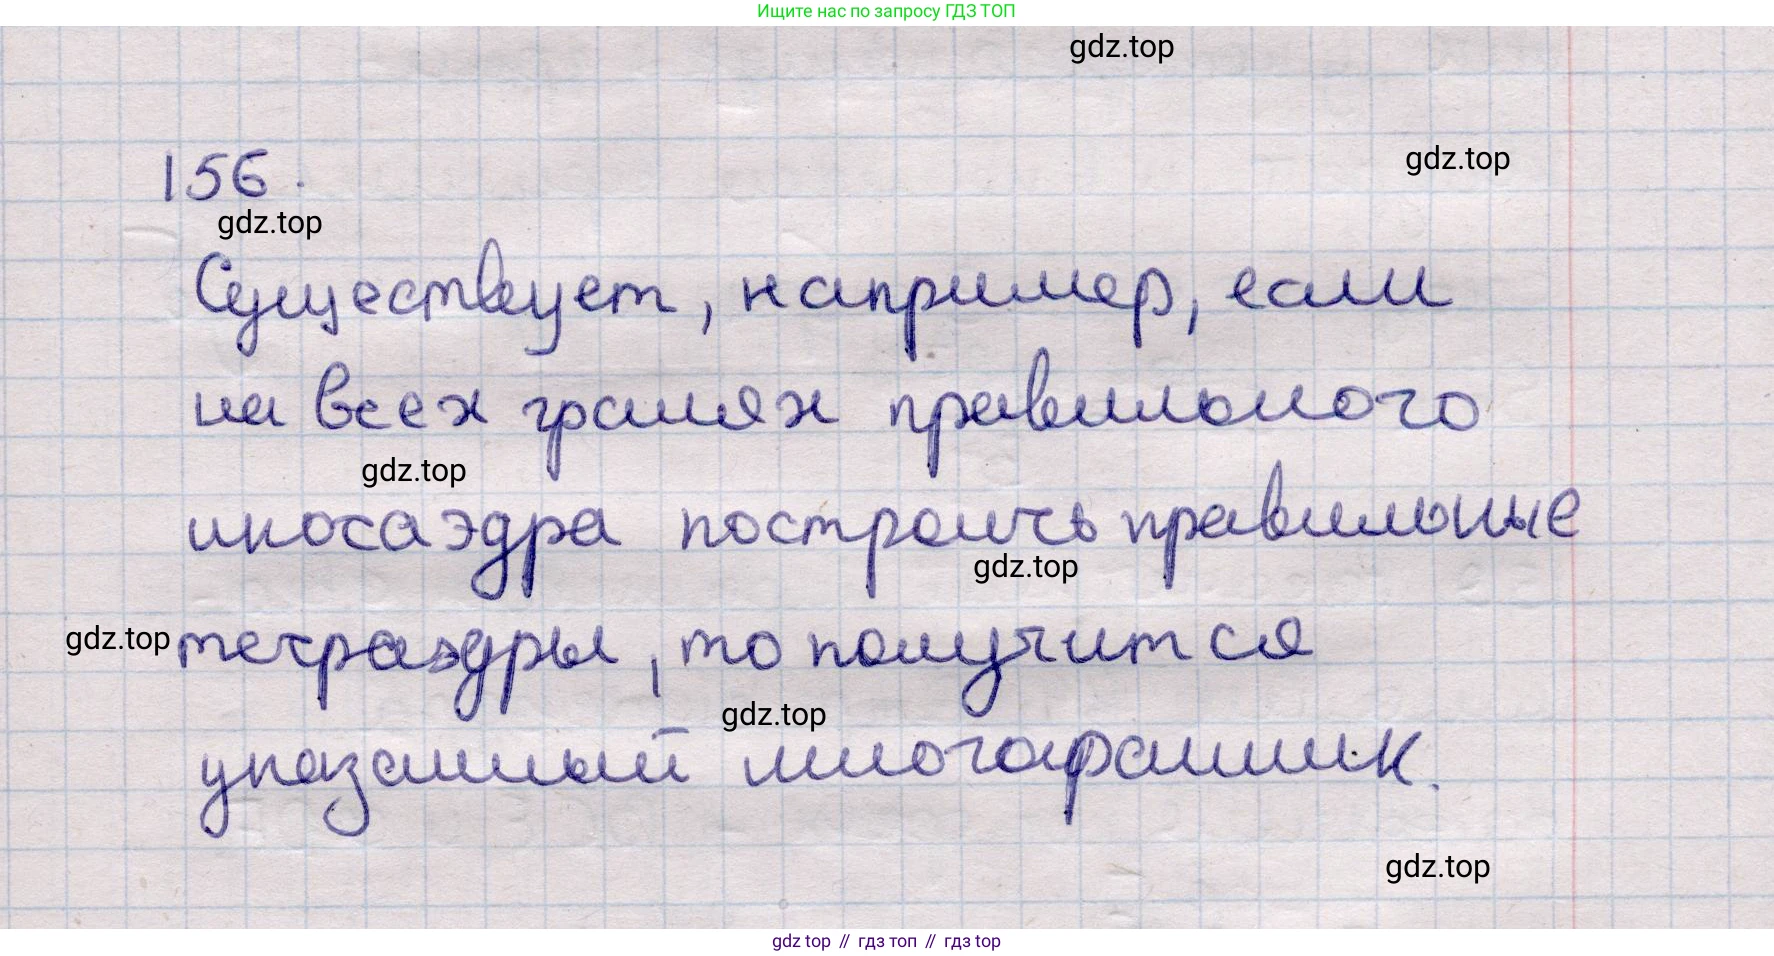 Ищите нас по запросу ГДЗ ТОП
gdz.top
156.
gdz.top
gdz.top
Существует, например, если
на всех гранях правильного
gdz.top
икосаэдра построить правильные
gdz.top
gdz.top
тетраэдры, то получится
gdz.top
указанный многогранник.
gdz.top
gdz top // гдз топ // гдз top